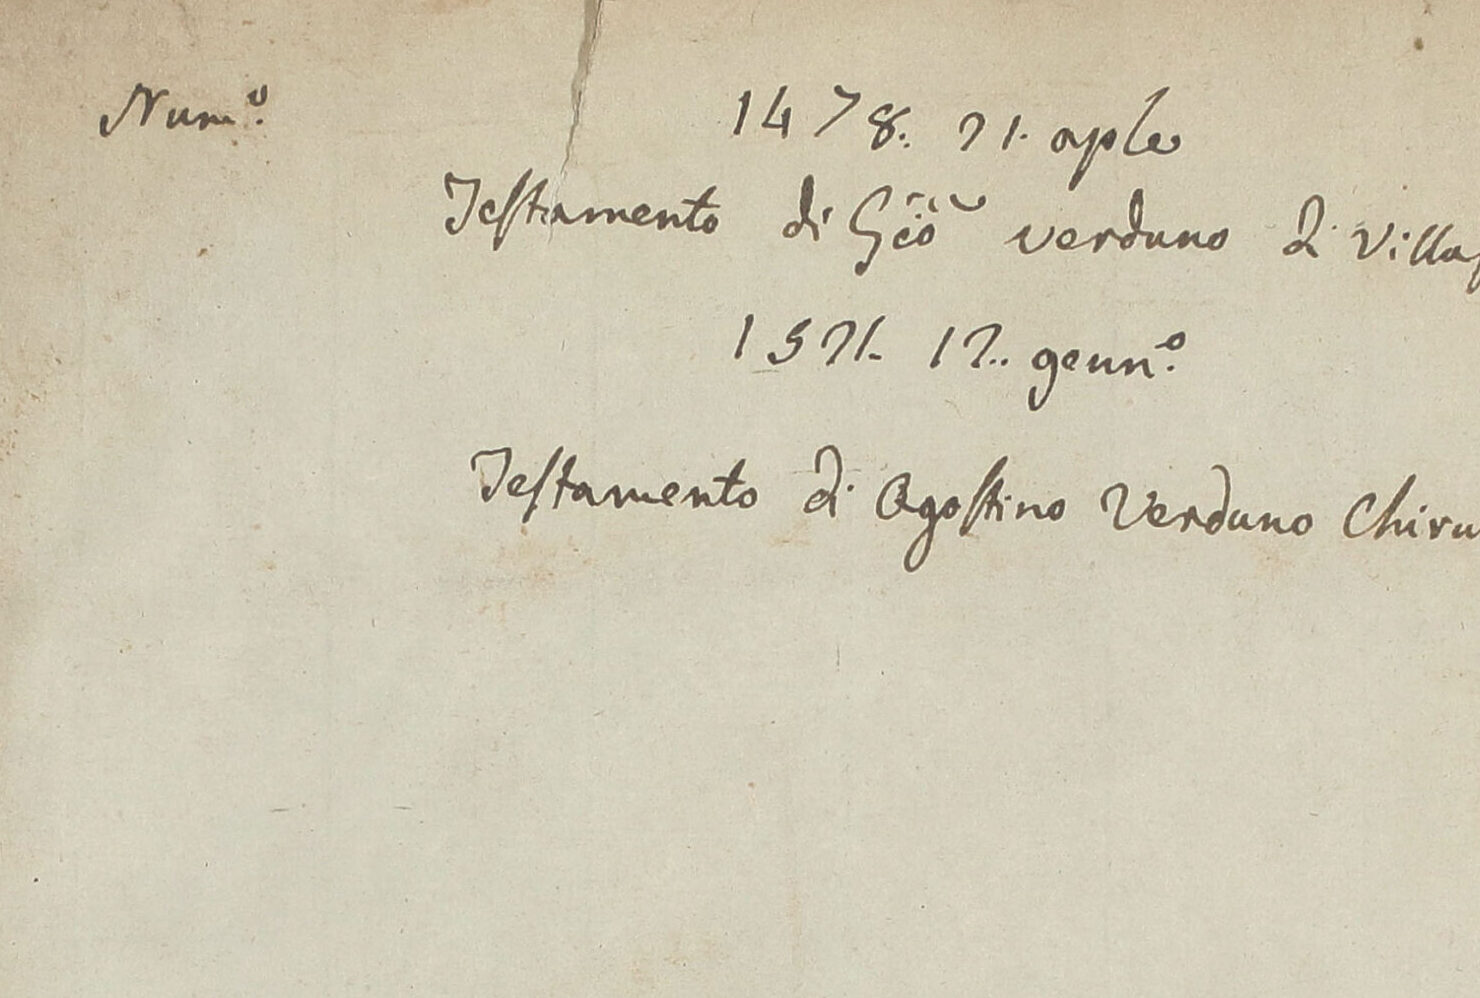 Num.º
1478. 21. aple
Testamento di Gio verduno di Villaf
1521. 12. genn.º
Testamento di Agostino Verduno Chiru